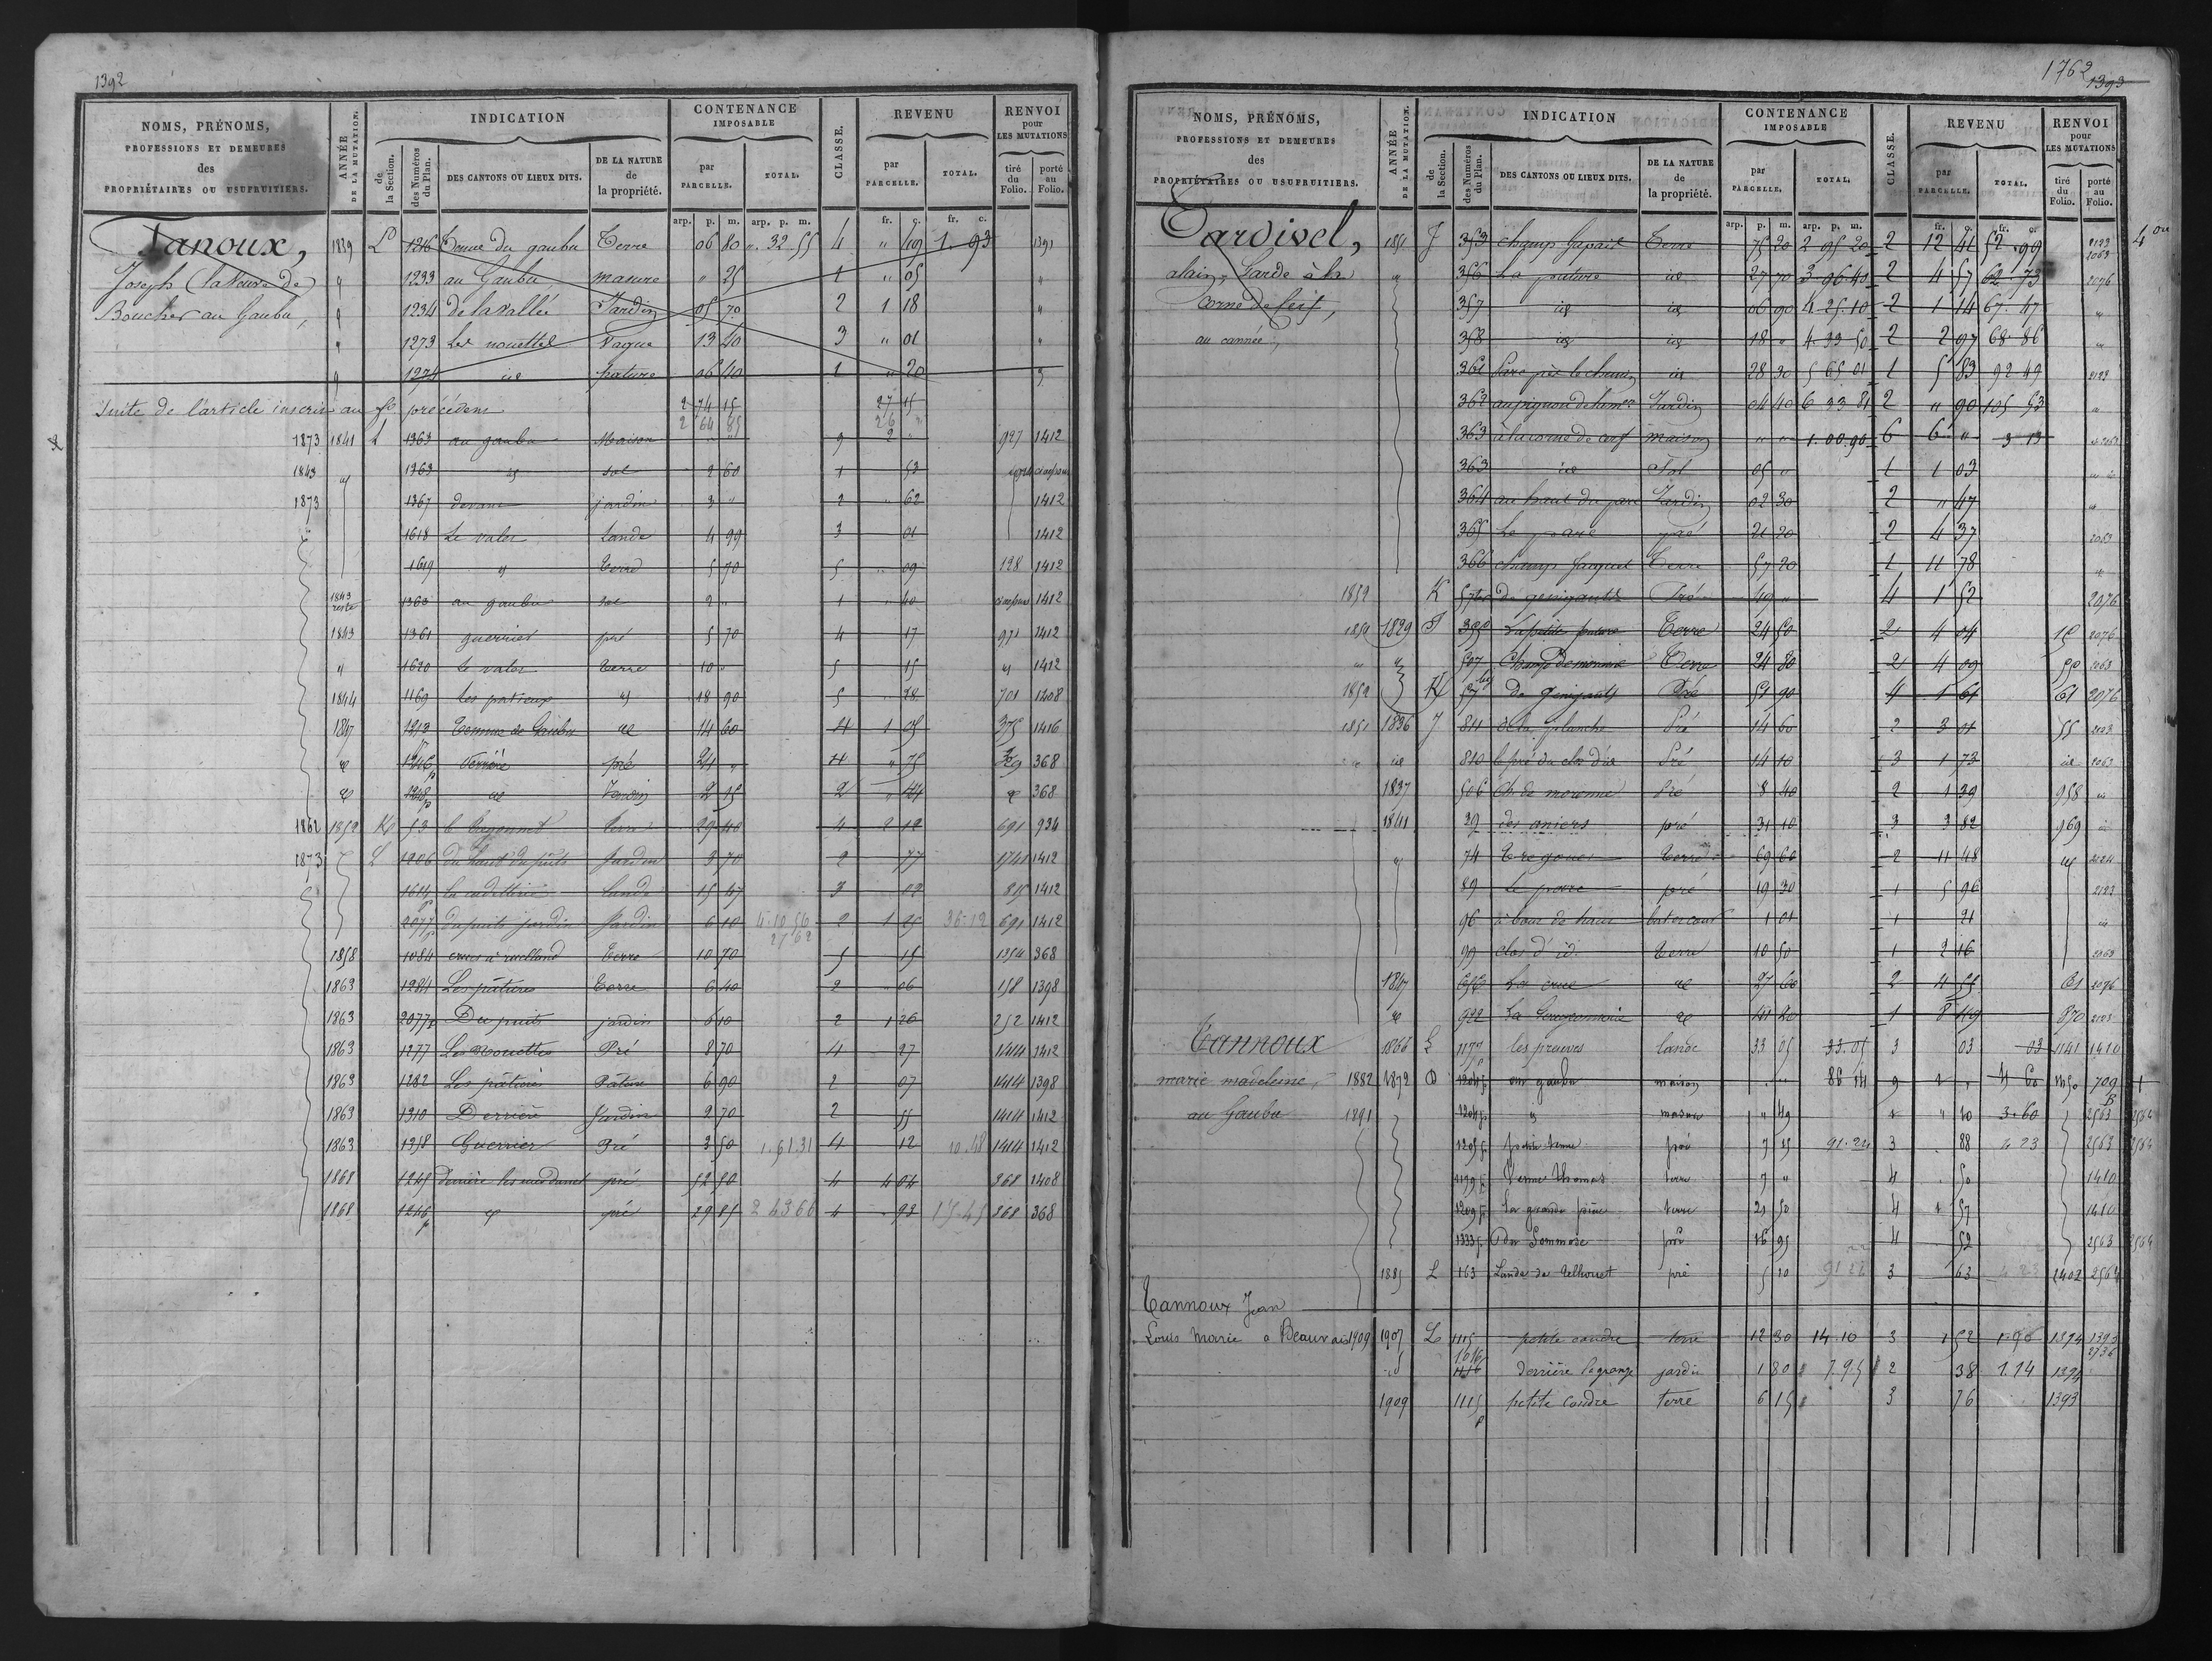 1392
NOMS, PRÉNOMS, PROFESSIONS ET DEMEURES des PROPRIÉTAIRES OU USUFRUITIERS.
ANNÉE DE LA MUTATION.
INDICATION
de la Section.
des Numéros du Plan.
DES CANTONS OU LIEUX DITS.
DE LA NATURE de la propriété.
CONTENANCE IMPOSABLE
par PARCELLE.
TOTAL.
CLASSE.
REVENU
par PARCELLE.
TOTAL.
RENVOI pour LES MUTATIONS
tiré du Folio.
porté au Folio.
arp. p. m. arp. p. m. fr. c. fr. c.
Tanoux, 1839 L 1216 Tenue du gaubu Terre 06 80 " 32 55 4 " 49 1 93 1391
Joseph (la veuve de) " 1233 au Gaubu, masure " 25 1 " 05 "
Boucher au Gaubu, " 1234 de la vallée Jardin 05 70 2 1 18 "
" 1273 les nouettes Vague 13 40 3 " 01 "
" 1274 id pature 06 40 1 " 20 "
Suite de l'article inscrit au fo précédent 2 74 15 27 15
2 64 85 26 "
1873 1841 L 1363 au gaubu Maison " " 9 2 " 927 1412
1843 " 1363 id sol 2 60 1 53
1873 1367 devant jardin 3 " 2 62 1412
1618 Le valer Lande 4 99 3 01 1412
1619 id Terre 5 70 5 " 09 128 1412
1843 reste 1363 au gaubu sol 2 " 1 " 40 1412
1843 1361 guerrier pré 5 70 4 " 17 971 1412
" 1620 le valer terre 10 " 5 15 " 1412
1844 1169 les portieux id 18 90 5 28 701 1408
1847 1213 Tennue de Gaubu id 14 60 4 1 05 375 1416
id 1246 p Derrière pré 24 " 4 " 75 368
id 1248 p id Jardin 2 15 2 " 44 id 368
1862 1852 K 53 Terre 29 40 4 2 12 691 934
1873 L 1206 du haut du puits Jardin 3 70 2 77 1741 1412
1614 p Lande 15 47 3 02 815 1412
2077 p du puits jardin Jardin 6 10 4.10.56 2 1 25 36.12 691 1412
27 62
1858 1084 Terre 10 70 5 15 1354 368
1863 1284 Les pâtures Terre 6 40 2 06 158 1398
1863 2077 p Du puits jardin 6 10 2 1 26 252 1412
1863 1277 Les nouettes Pré 8 70 4 27 1414 1412
1863 1282 Les pâtures Pature 6 90 2 07 1414 1398
1863 1210 Derrière Jardin 2 70 2 55 1414 1412
1863 1358 Guerrier Pré 3 50 1.61.31 4 12 10.48 1414 1412
1868 1245 pré 52 50 4 4 04 368 1408
1868 1246 p id pré 29 85 2 43 66 4 93 17.45 368 368
1762
1393
NOMS, PRÉNOMS, PROFESSIONS ET DEMEURES des PROPRIÉTAIRES OU USUFRUITIERS.
ANNÉE DE LA MUTATION.
INDICATION
de la Section.
des Numéros du Plan.
DES CANTONS OU LIEUX DITS.
DE LA NATURE de la propriété.
CONTENANCE IMPOSABLE
par PARCELLE.
TOTAL.
CLASSE.
REVENU
par PARCELLE.
TOTAL.
RENVOI pour LES MUTATIONS
tiré du Folio.
porté au Folio.
arp. p. m. arp. p. m. fr. c. fr. c.
Tardivel, 1851 J 353 champ Gapail Terre 75 20 2 95 20 2 12 41 52 99 2123
2063
alain, Garde à la " 356 La pature id 27 70 3 96 40 2 4 57 62 73 2076
Corne de Cerf, 357 id id 06 90 4 25 10 2 1 14 67 47 "
au cannée, 358 id id 18 " 4 99 50 2 2 97 68 86 "
361 Parc près le chemin id 28 30 5 65 01 1 5 83 92 49 2123
362 Jardin 04 40 6 33 81 2 " 90 105 53
363 à la corne de cerf maison " " 1.00.90 6 6 " 3 13
363 id Sol 05 " 1 1 03
364 au haut du parc Jardin 02 30 2 " 47
365 Le parc pré 21 20 2 4 37 2053
366 champ Jacquet Terre 57 20 1 11 78
1852 K 57 bis de genigault Pré 49 " 4 1 52 2076
1851 1829 J 355 La petite pature Terre 24 50 2 4 04 15 2076
" " 507 Terre 24 80 2 4 09 55 2063
1852 K 57 bis de Genigault Pré 51 90 4 1 61 61 2076
1851 1836 J 811 de la planche Pré 14 60 2 3 01 55 2123
id 810 le pré du clos d'is Pré 14 10 3 1 73 id 2063
1837 506 Pré 8 40 2 1 39 958 id
1841 39 des aniers pré 31 10 3 3 82 969 id
" 74 Terre 69 60 2 11 48 " 2024
89 le parc pré 19 30 1 5 96 2123
96 bat et cour 1 01 1 21 id
99 clos d'is Terre 10 50 1 2 16 2063
1847 656 La crue id 27 60 2 4 55 61 2076
id 922 id 41 20 1 8 49 870 2123
Tannoux 1866 L 1177 p les preuves lande 33 05 33.05 3 03 03 1141 1410
marie madeleine, 1882 1872 D 1204 p au gaubu maison " " 86 14 9 4 60 1250 709 1
au Gaubu 1891 1204 p " masure " 49 1 " 10 3.60 2563 2564
1205 p pré 7 15 91.24 3 88 4 23 2563 2564
1179 p Tenue Thomas terre 7 " 4 50 1410
1209 p La grande pièce terre 21 50 4 1 57 1410
1333 p pré 16 95 4 52 2563 2564
1885 L 163 Lande de Telhouet pré 5 10 91 22 3 63 4 23 2402 2564
Tannoux Jean
Louis Marie a Beauvais 1909 1907 L 1115 petite coudre terre 12 30 14.10 3 1 52 1.90 1394 1393
2736
1016
1116 derrière la grange jardin 1 80 7.95 2 38 1.14 1394
1909 1115 p petite coudre terre 6 15 3 76 1393